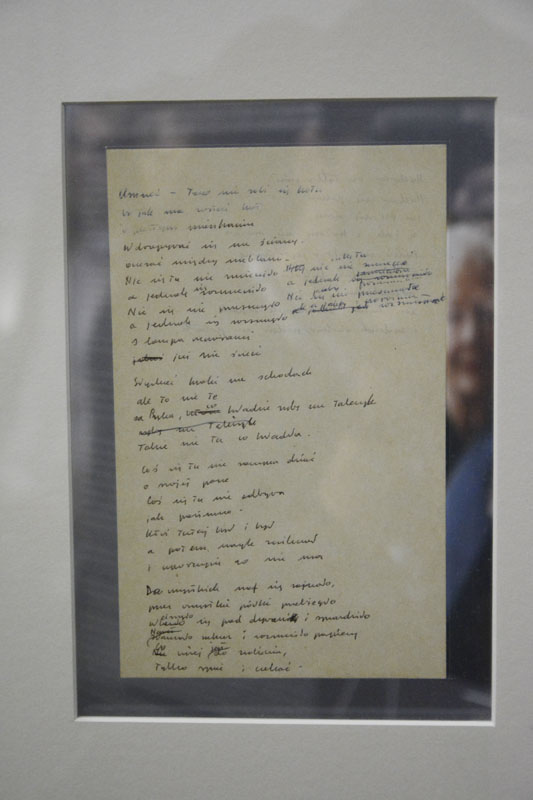 Umrzeć – tego nie robi się kotu.
Bo jak ma kot
w pustym mieszkaniu
Wdrapywać się na ściany.
Ocierać między meblami.
Nic się tu nie zmieniło nic nie
a jednak a jednak
Nic się nie przesunęło Nic się nie
a jednak się rozsunęło
I lampa wieczorami
już nie świeci
Słychać kroki na schodach
ale to nie te
Ręka, co kładzie rybę na talerzyk
rybę na talerzyk
Także nie ta co kładła.
Coś się tu nie zaczyna dziać
o swojej porze
Coś się tu nie odbywa
jak powinno.
Ktoś tutaj był i był
a potem nagle zniknął
i uporczywie go nie ma
Do wszystkich szaf się zajrzało,
przez wszystkie półki przebiegło
się pod dywan i sprawdziło
zakaz i rozrzuciło papiery
Co więcej robić,
tylko spać i czekać.